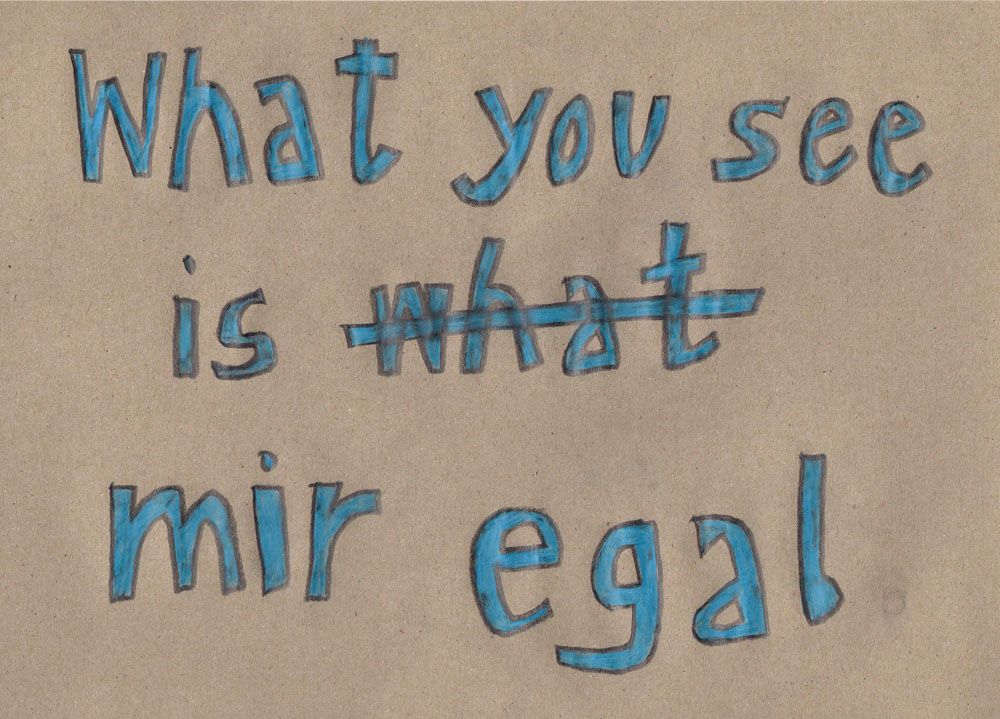 What you see
is ~~what~~
mir egal